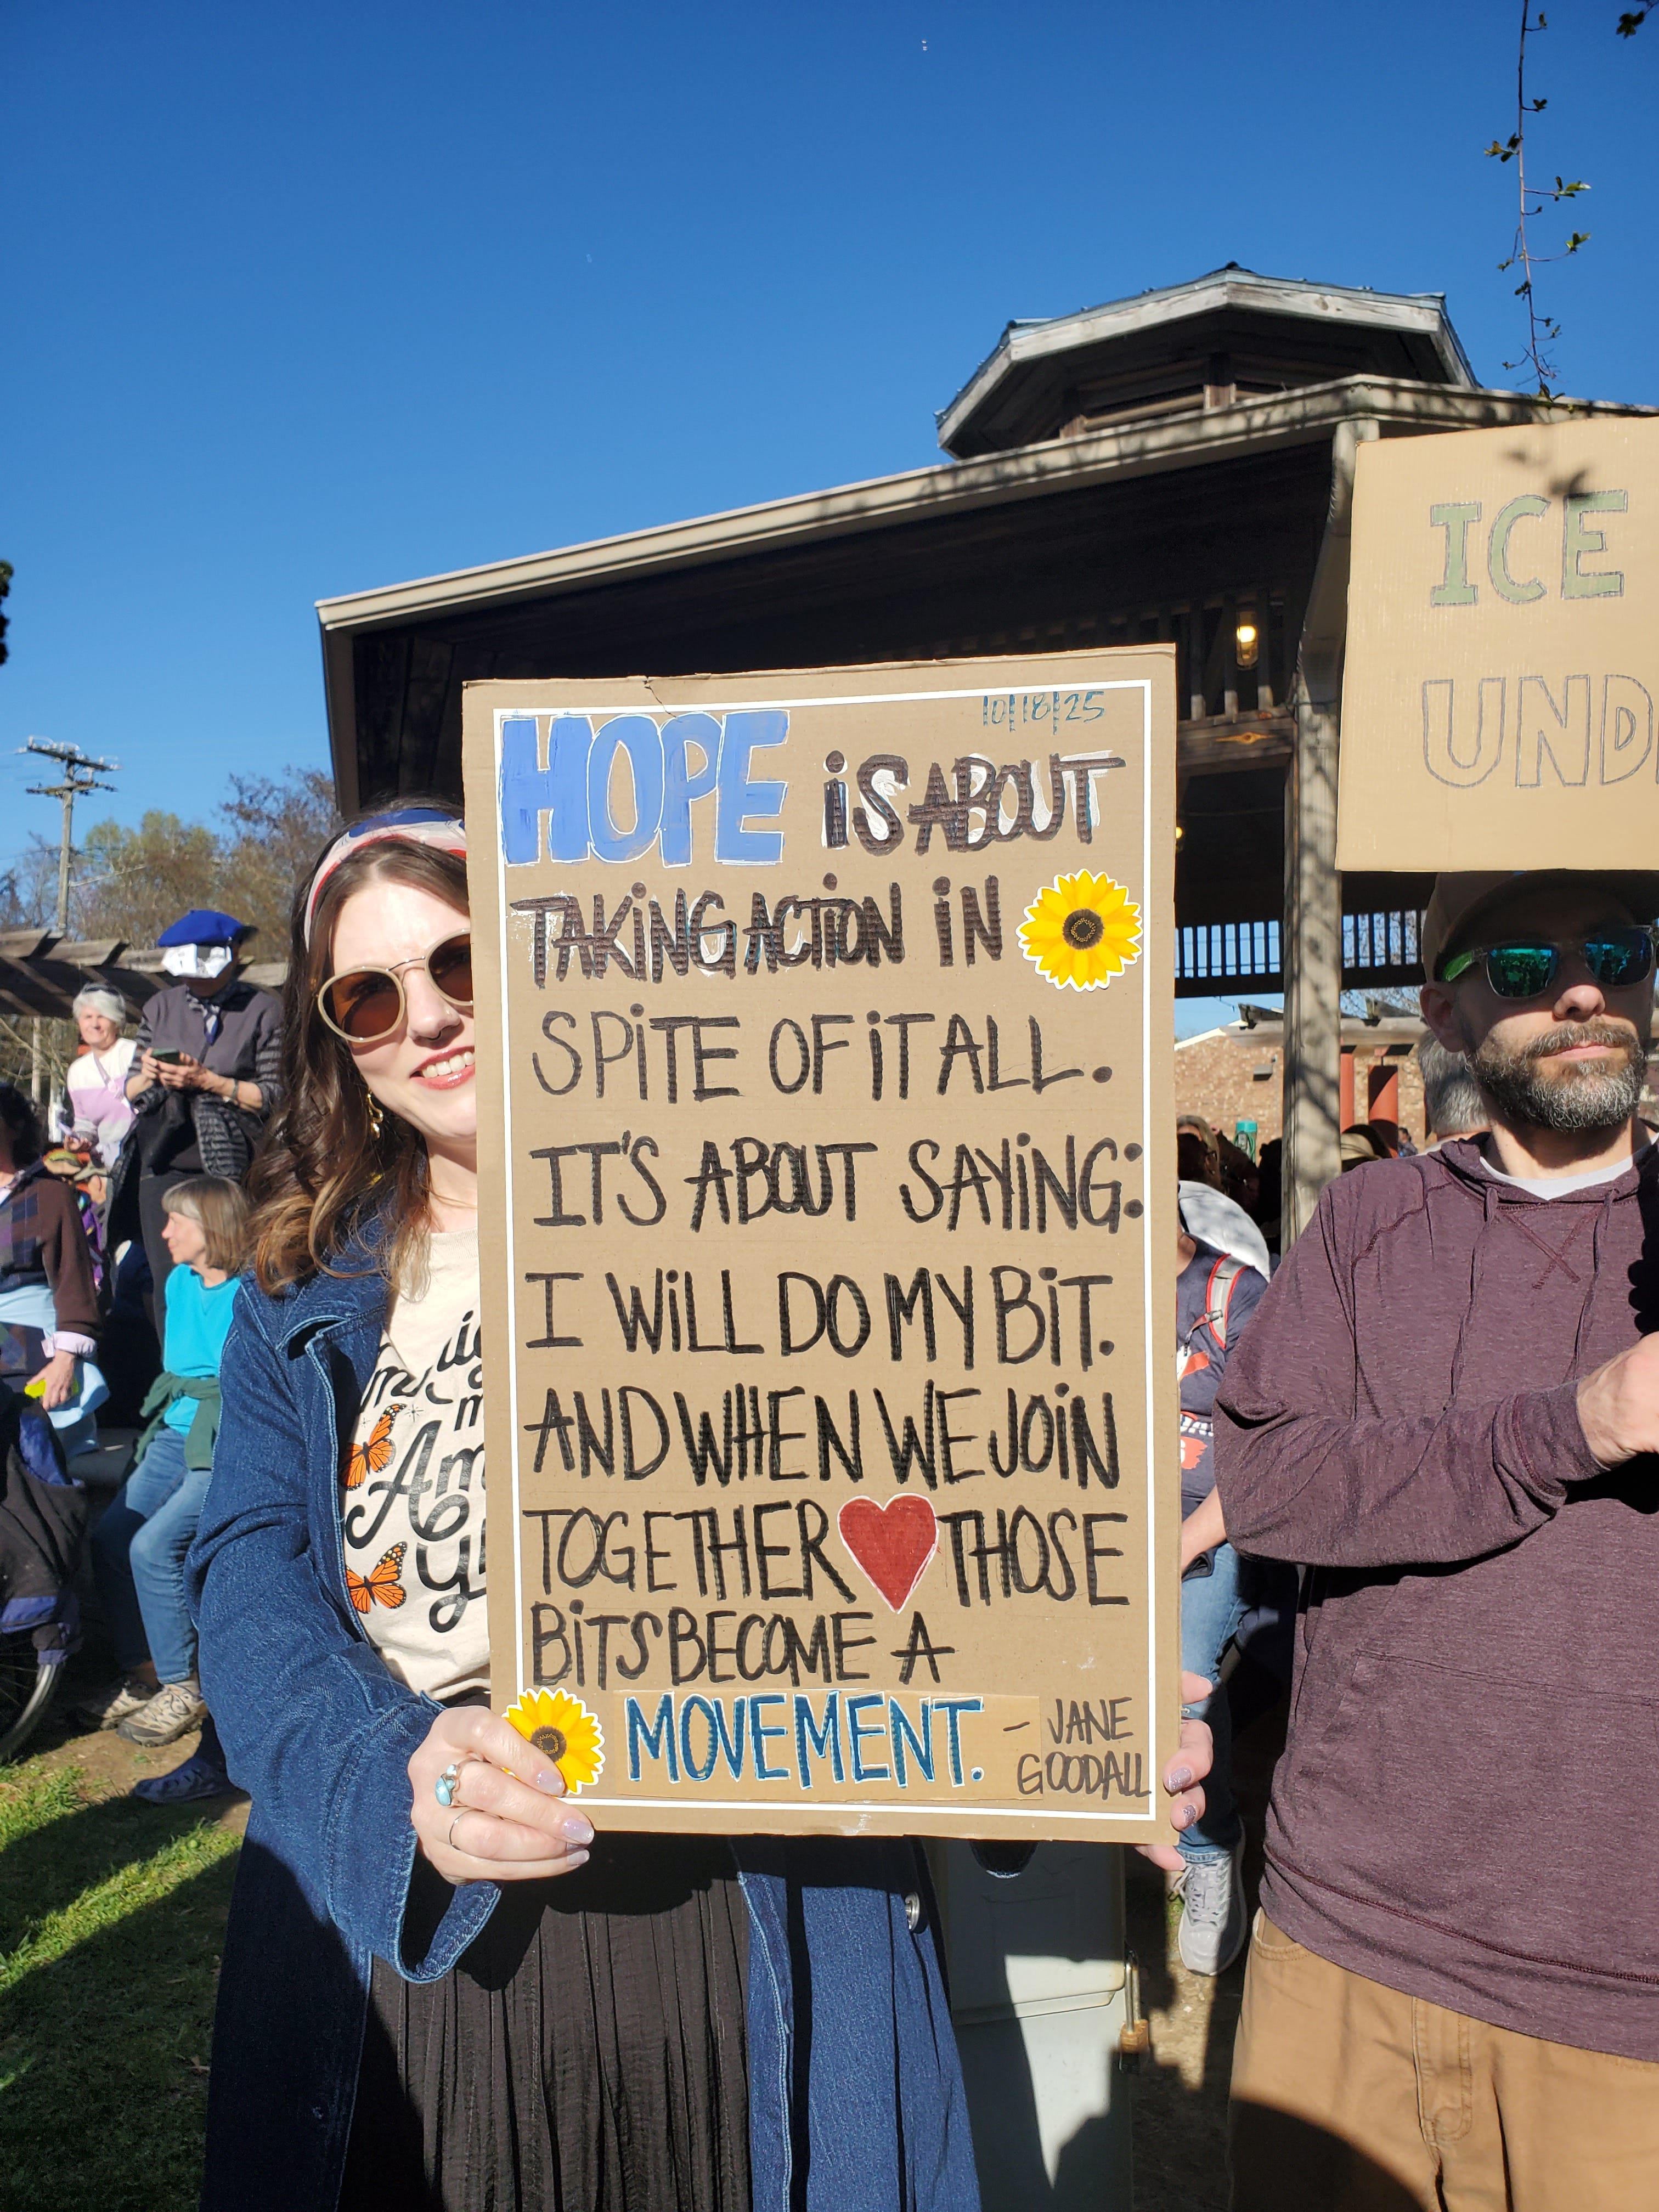 10/18/25
HOPE iS ABOUT
TAKiNG ACTiON iN
SPiTE OF iT ALL.
IT'S ABOUT SAYiNG:
I WiLL DO MY BiT.
AND WHEN WE JOiN
TOGETHER THOSE
BiTS BECOME A
MOVEMENT.
- JANE
GOODALL
ICE